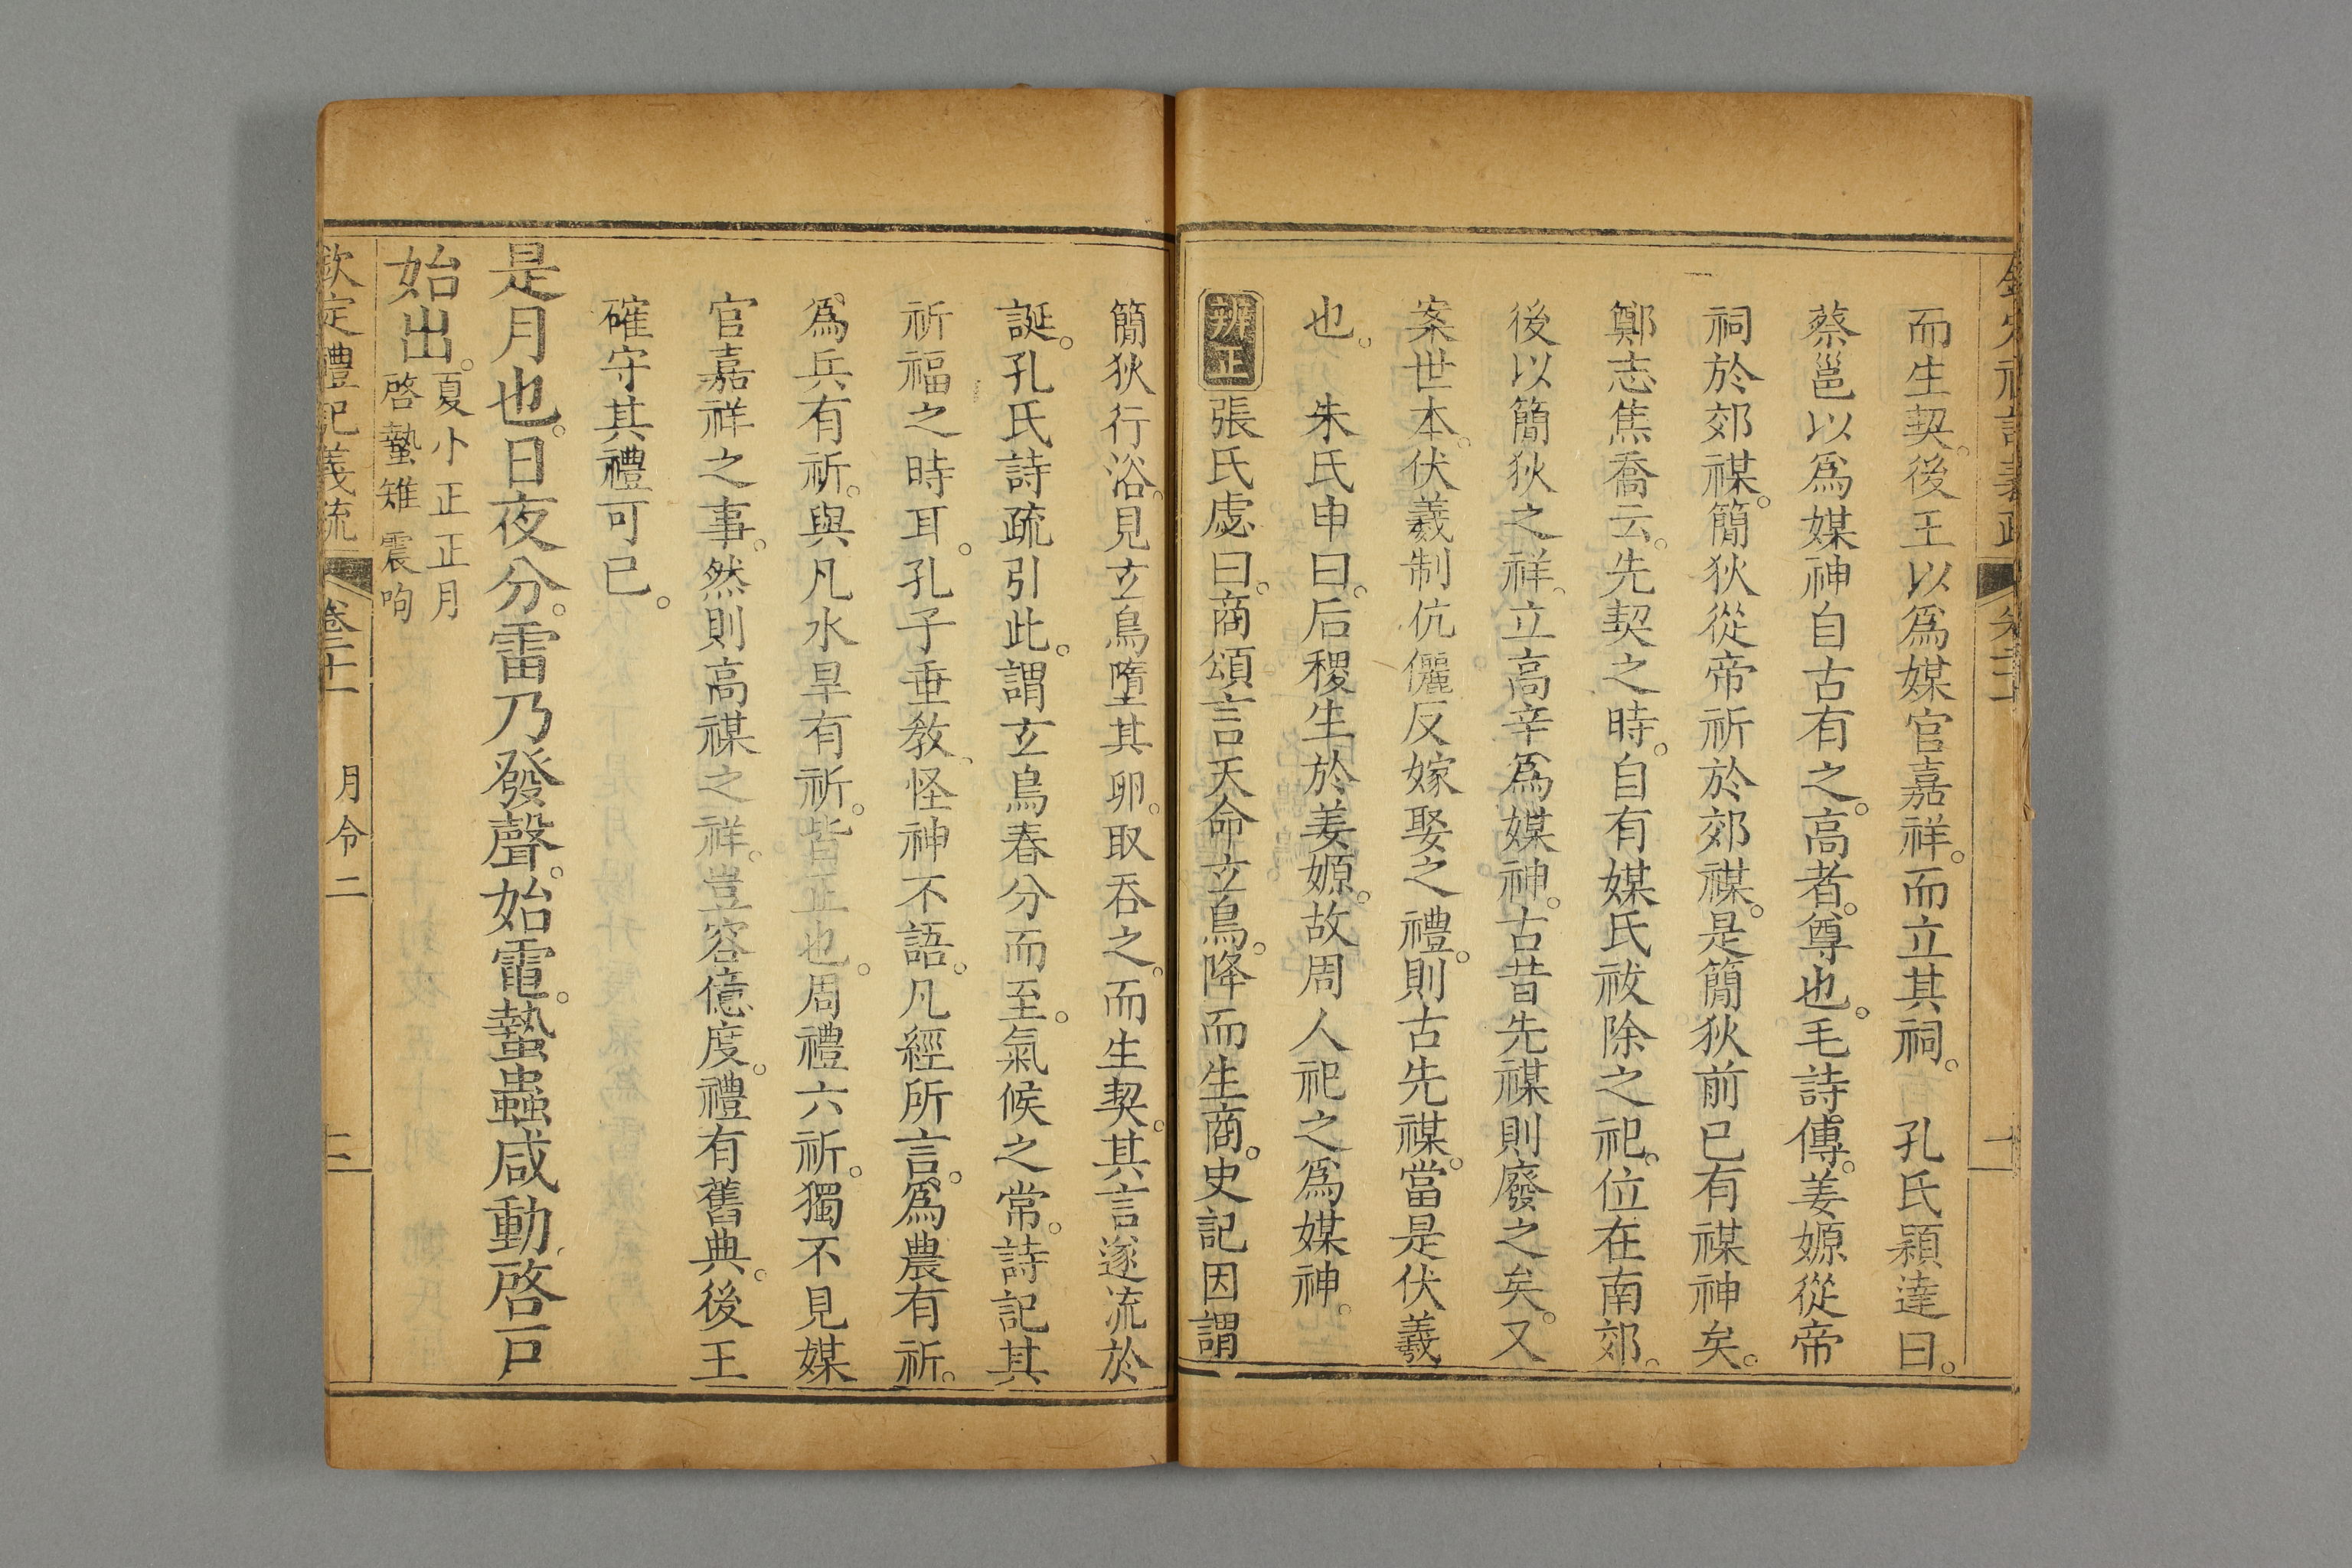 而生契。後王以為媒官嘉祥。而立其祠。　孔氏穎達曰。
蔡邕以為媒神自古有之。高者。尊也。毛詩傳。姜嫄從帝
祠於郊禖。簡狄從帝祈於郊禖。是簡狄前已有禖神矣。
鄭志焦喬云。先契之時。自有媒氏祓除之祀。位在南郊。
後以簡狄之祥。立高辛為媒神。古昔先禖則廢之矣。又
案世本。伏羲制伉儷皮嫁娶之禮。則古先禖。當是伏羲
也。　朱氏申曰。后稷生於姜嫄。故周人祀之為媒神。
辨正張氏慮曰。商頌言天命玄鳥。降而生商。史記因謂
簡狄行浴。見玄鳥墮其卵。取吞之。而生契。其言遂流於
誕。孔氏詩疏引此。謂玄鳥春分而至。氣候之常。詩記其
祈福之時耳。孔子垂教。怪神不語。凡經所言。為農有祈。
為兵有祈。與凡水旱有祈。皆正也。周禮六祈。獨不見媒
官嘉祥之事。然則高禖之祥。豈容億度。禮有舊典。後王
確守其禮可已。
是月也。日夜分。雷乃發聲。始電。蟄蟲咸動。啓戶
始出。夏小正正月
啓蟄雉震呴
欽定禮記義疏　卷二十一　月令二　三